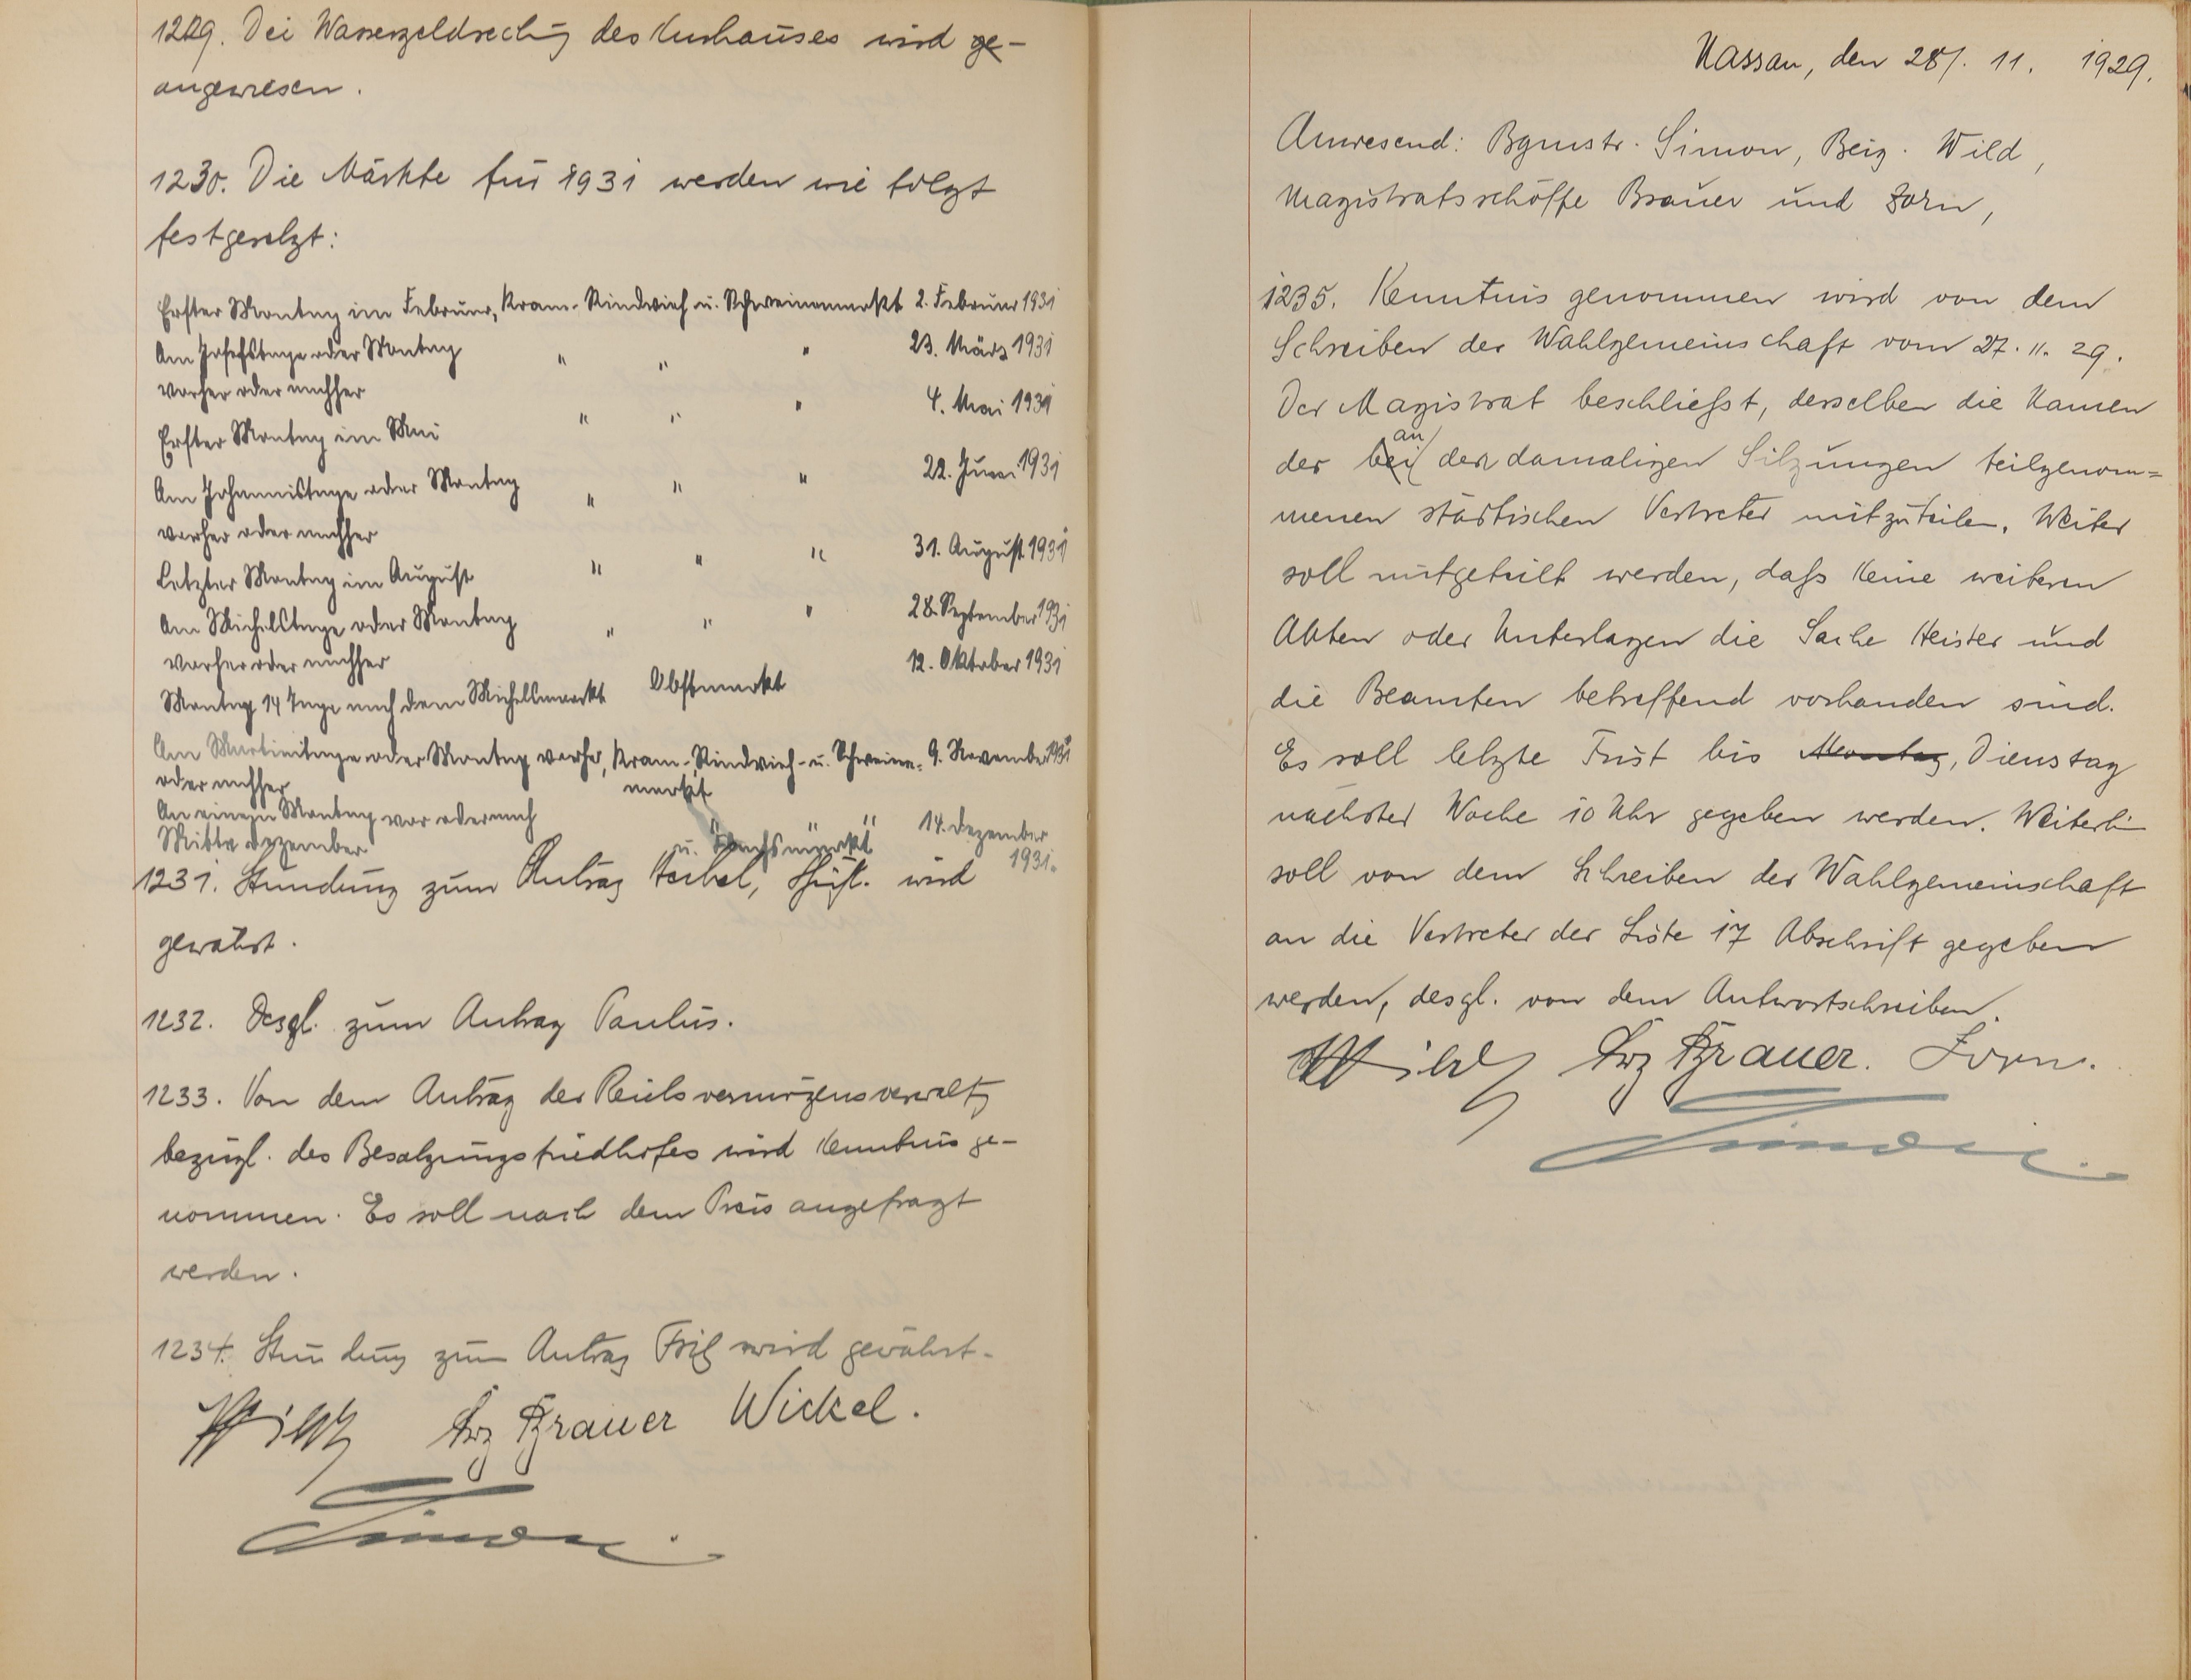 1229. Die Wassergeldrechng des Kurhauses wird ge-
angewiesen.
1230. Die Märkte für 1931 werden wie folgt
festgesetzt:
Erster Montag im Februar, Kram- Rindvieh u. Schweinemarkt 2. Februar 1931
Am Josefstage oder Montag " " " 23. März 1931
vorher oder nachher
Erster Montag im Mai " " " 4. Mai 1931
Am Johannistage oder Montag " " " 22. Juni 1931
vorher oder nachher
Letzter Montag im August " " " 31. August 1931
Am Michelstage oder Montag " " " 28. September 1931
vorher oder nachher
Montag 14 Tage nach dem Michelsmarkt Obstmarkt 12. Oktober 1931
Am Martinitage oder Montag vorher, Kram-, Rindvieh- u. Schweine- 9. November 1931
oder nachher markt
An einem Montag vor oder nach " " " 14. Dezember
Mitte Dezember u. Flachsmarkt 1931.
1231. Stundung zum Antrag wird
gewährt.
1232. Desgl. zum Antrag Paulus.
1233. Von dem Antrag der Reichsvermögensverwaltg
bezügl. des Besatzungsfriedhofes wird Kenntnis ge-
nommen. Es soll nach dem Preis angefragt
werden.
1234. Stundung zum Antrag Fritz wird gewährt.
Wild Brauer Wickel.
Simon.
Nassau, den 28/. 11. 1929.
Anwesend: Bgmstr. Simon, Beig. Wild,
Magistratsschöffe Brauer und Zorn,
1235. Kenntnis genommen wird von dem
Schreiben der Wahlgemeinschaft vom 27. 11. 29.
Der Magistrat beschließt, derselben die Namen
der bei an den damaligen Sitzungen teilgenom=
menen städtischen Vertreter mitzuteilen. Weiter
soll mitgeteilt werden, daß keine weiteren
Akten oder Unterlagen die Sache Heister und
die Beamten betreffend vorhanden sind.
Es soll letzte Frist bis Montag, Dienstag
nächster Woche 10 Uhr gegeben werden. Weiterhin
soll von dem Schreiben der Wahlgemeinschaft
an die Vertreter der Liste 17 Abschrift gegeben
werden, desgl. von dem Antwortschreiben.
Wild Brauer. Zorn.
Simon.